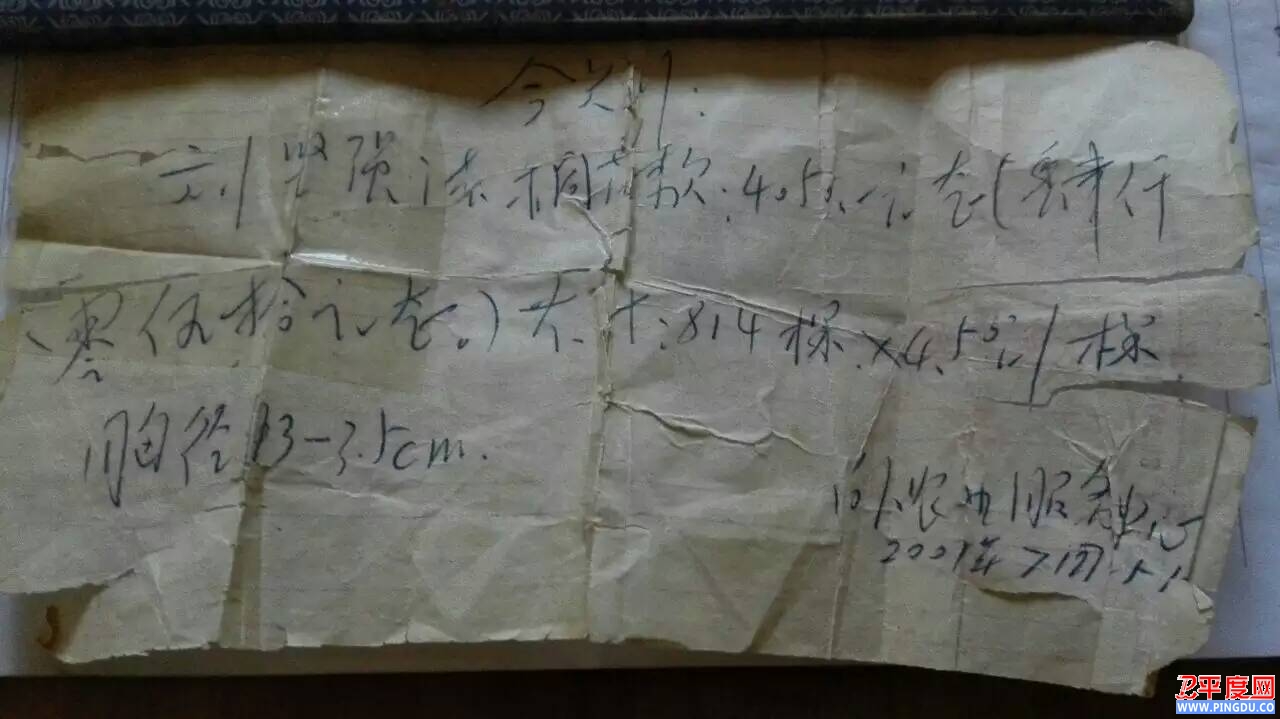 今欠到:
刘坚强 法桐苗款:4050.元整(肆仟
零伍拾元整。)共计:814棵×4.5元/棵
胸径3-3.5cm.
农业服务中心
2001年7月5日
平度网
WWW.PINGDU.CO